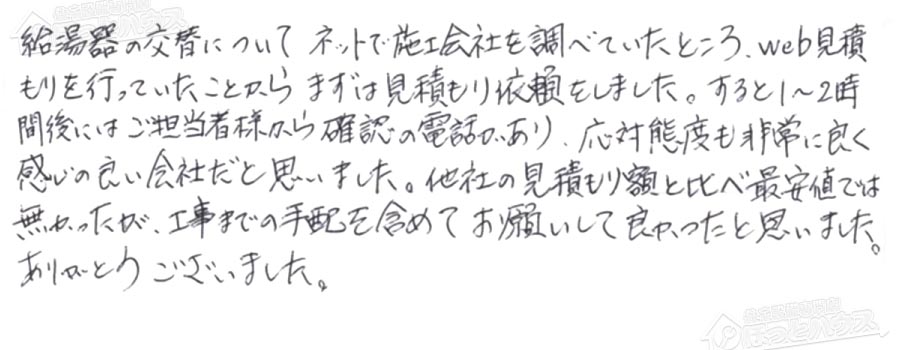 給湯器の交替について ネットで施工会社を調べていたところ、web見積
もりを行っていたことから まずは見積もり依頼をしました。すると1～2時
間後には ご担当者様から 確認の電話があり、応対態度も非常に良く
感じの良い会社だと思いました。他社の見積もり額と比べ最安値では
無かったが、工事までの手配を含めて お願いして良かったと思いました。
ありがとう ございました。
ほっとハウス